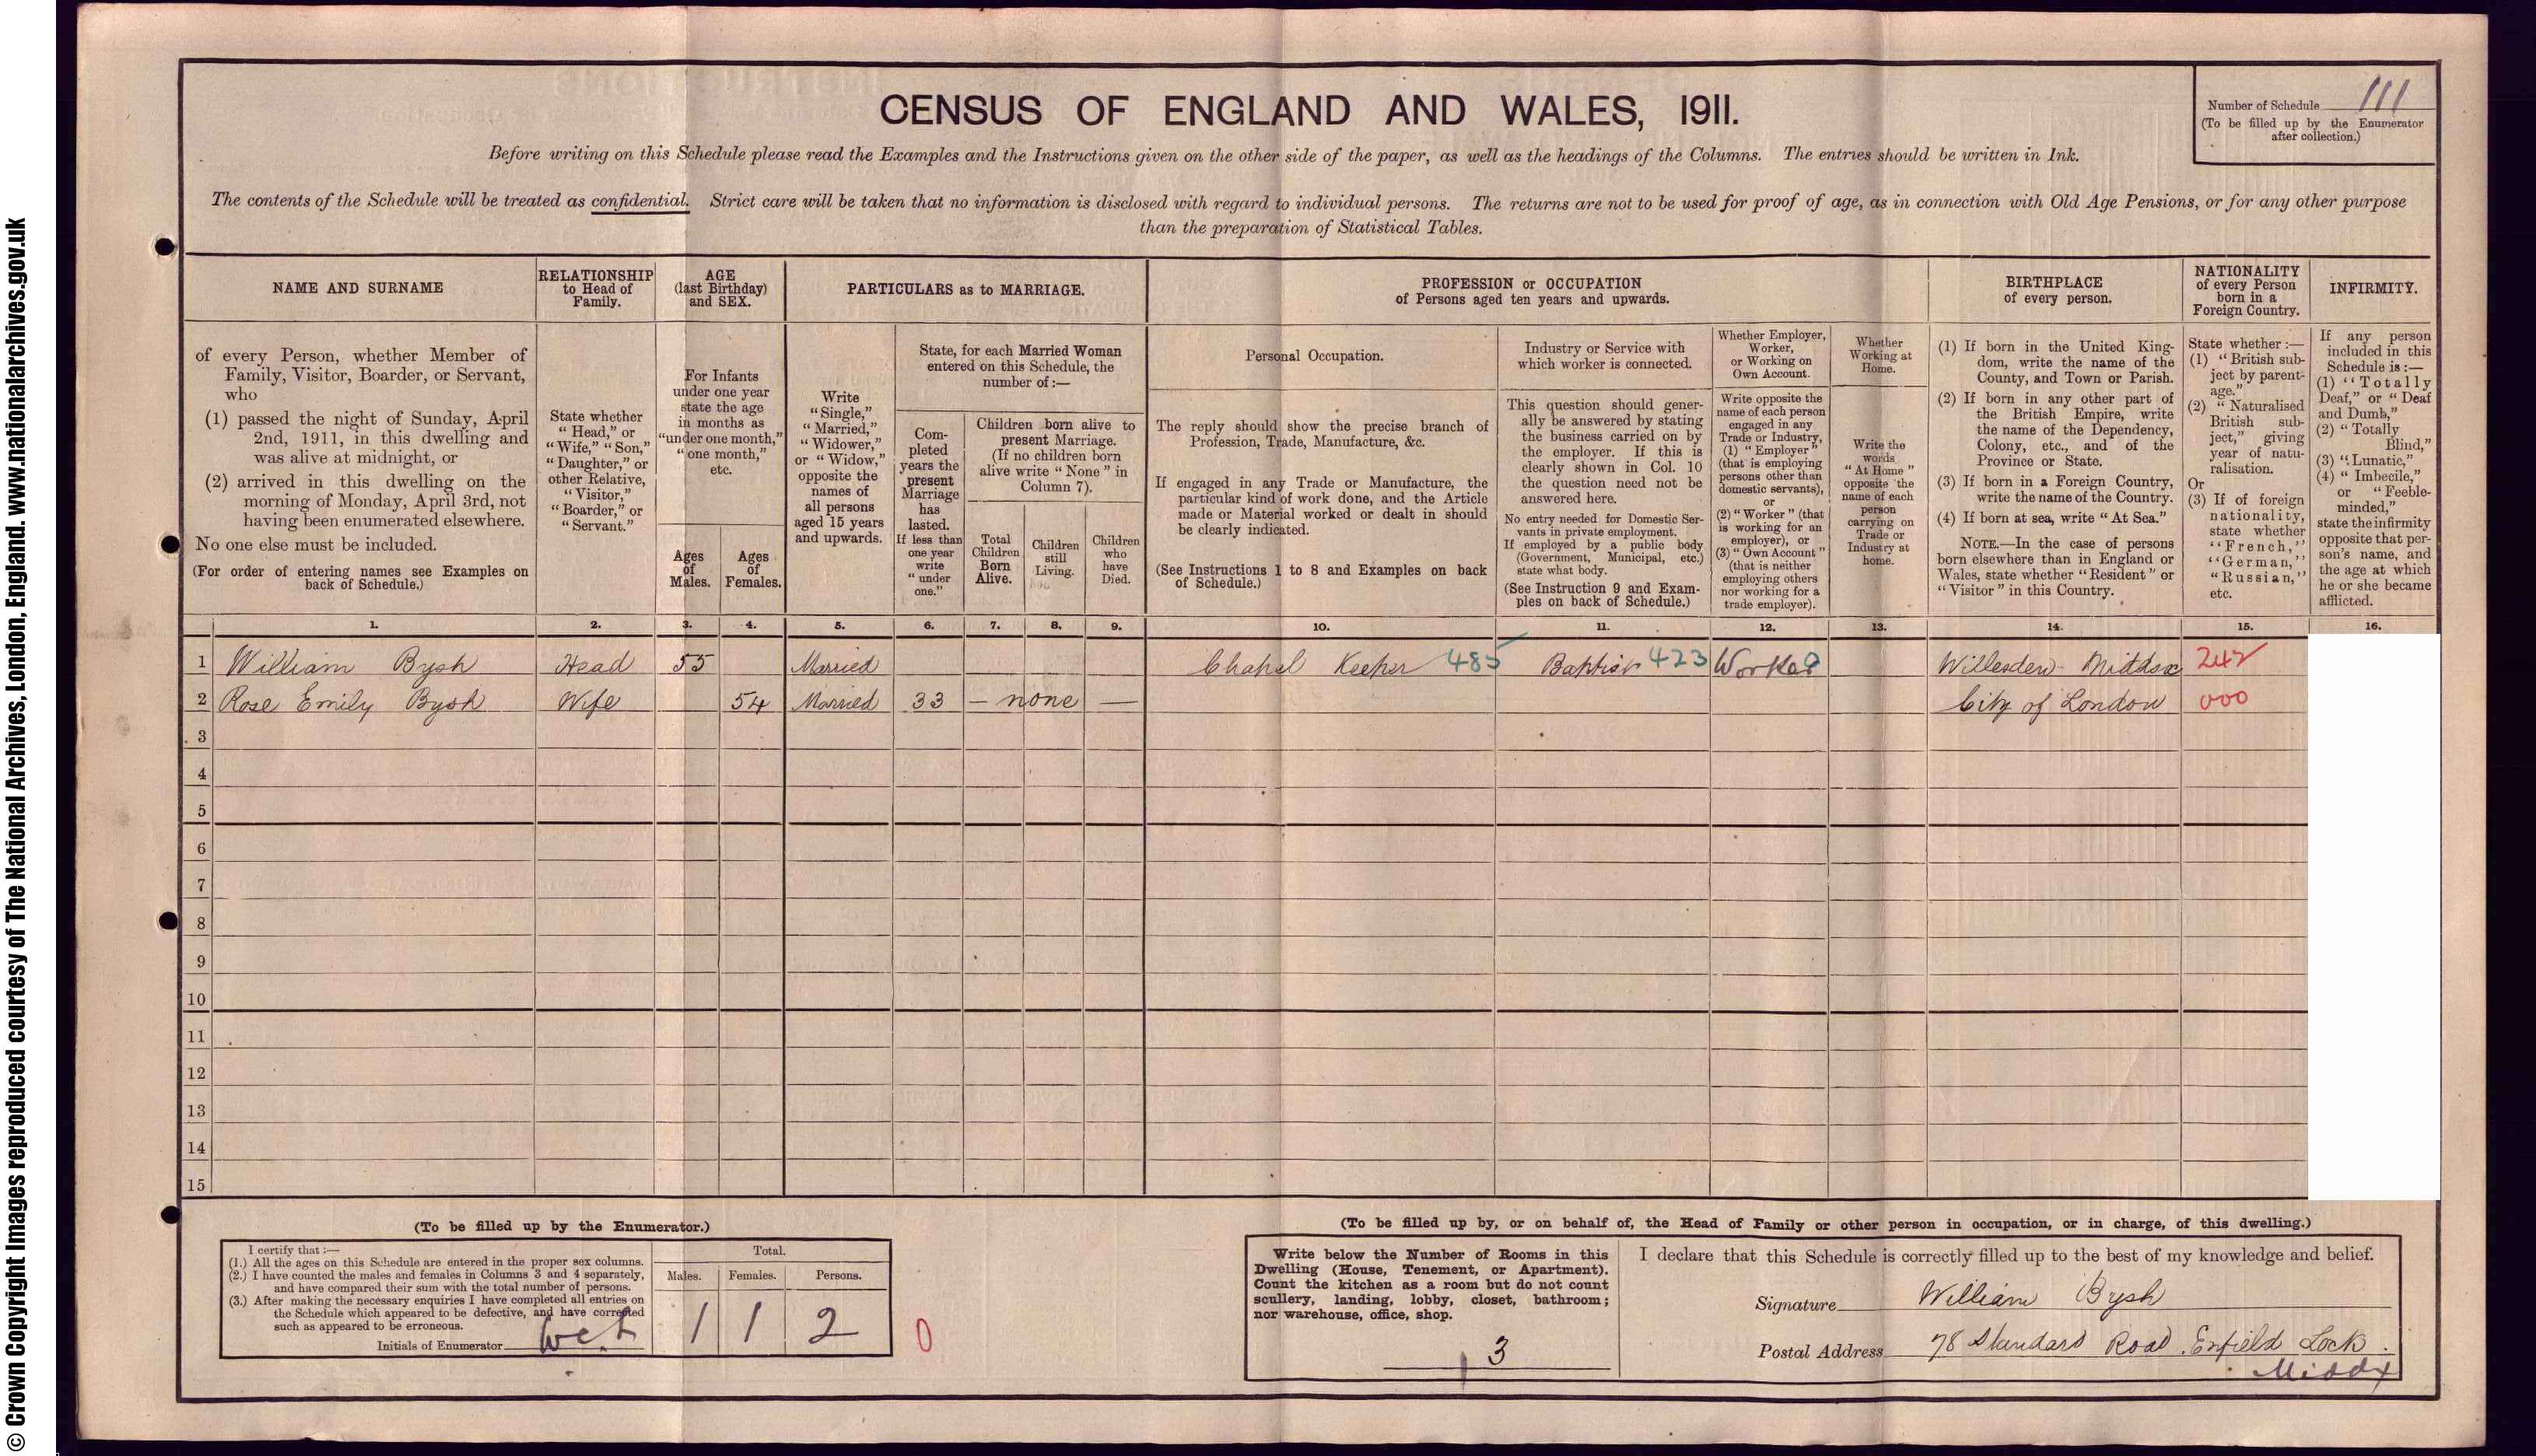 © Crown Copyright Images reproduced courtesy of The National Archives, London, England. www.nationalarchives.gov.uk
CENSUS OF ENGLAND AND WALES, 1911.
Number of Schedule 111
(To be filled up by the Enumerator
after collection.)
Before writing on this Schedule please read the Examples and the Instructions given on the other side of the paper, as well as the headings of the Columns. The entries should be written in Ink.
The contents of the Schedule will be treated as confidential. Strict care will be taken that no information is disclosed with regard to individual persons. The returns are not to be used for proof of age, as in connection with Old Age Pensions, or for any other purpose
than the preparation of Statistical Tables.
NAME AND SURNAME
of every Person, whether Member of
Family, Visitor, Boarder, or Servant,
who
(1) passed the night of Sunday, April
2nd, 1911, in this dwelling and
was alive at midnight, or
(2) arrived in this dwelling on the
morning of Monday, April 3rd, not
having been enumerated elsewhere.
No one else must be included.
(For order of entering names see Examples on
back of Schedule.)
RELATIONSHIP
to Head of
Family.
State whether
"Head," or
"Wife," "Son,"
"Daughter," or
other Relative,
"Visitor,"
"Boarder," or
"Servant."
AGE
(last Birthday)
and SEX.
For Infants
under one year
state the age
in months as
"under one month,"
"one month,"
etc.
Ages
of
Males.
Ages
of
Females.
PARTICULARS as to MARRIAGE.
Write
"Single,"
"Married,"
"Widower,"
or "Widow,"
opposite the
names of
all persons
aged 15 years
and upwards.
State, for each Married Woman
entered on this Schedule, the
number of :—
Com-
pleted
years the
present
Marriage
has
lasted.
If less than
one year
write
"under
one."
Children born alive to
present Marriage.
(If no children born
alive write "None" in
Column 7).
Total
Children
Born
Alive.
Children
still
Living.
Children
who
have
Died.
PROFESSION or OCCUPATION
of Persons aged ten years and upwards.
Personal Occupation.
The reply should show the precise branch of
Profession, Trade, Manufacture, &c.
If engaged in any Trade or Manufacture, the
particular kind of work done, and the Article
made or Material worked or dealt in should
be clearly indicated.
(See Instructions 1 to 8 and Examples on back
of Schedule.)
Industry or Service with
which worker is connected.
This question should gener-
ally be answered by stating
the business carried on by
the employer. If this is
clearly shown in Col. 10
the question need not be
answered here.
No entry needed for Domestic Ser-
vants in private employment.
If employed by a public body
(Government, Municipal, etc.)
state what body.
(See Instruction 9 and Exam-
ples on back of Schedule.)
Whether Employer,
Worker,
or Working on
Own Account.
Write opposite the
name of each person
engaged in any
Trade or Industry,
(1) "Employer"
(that is employing
persons other than
domestic servants),
or
(2) "Worker" (that
is working for an
employer), or
(3) "Own Account"
(that is neither
employing others
nor working for a
trade employer).
Whether
Working at
Home.
Write the
words
"At Home"
opposite the
name of each
person
carrying on
Trade or
Industry at
home.
BIRTHPLACE
of every person.
(1) If born in the United King-
dom, write the name of the
County, and Town or Parish.
(2) If born in any other part of
the British Empire, write
the name of the Dependency,
Colony, etc., and of the
Province or State.
(3) If born in a Foreign Country,
write the name of the Country.
(4) If born at sea, write "At Sea."
NOTE.—In the case of persons
born elsewhere than in England or
Wales, state whether "Resident" or
"Visitor" in this Country.
NATIONALITY
of every Person
born in a
Foreign Country.
State whether :—
(1) "British sub-
ject by parent-
age."
(2) "Naturalised
British sub-
ject," giving
year of natu-
ralisation.
Or
(3) If of foreign
nationality,
state whether
"French,"
"German,"
"Russian,"
etc.
INFIRMITY.
If any person
included in this
Schedule is :—
(1) "Totally
Deaf," or "Deaf
and Dumb,"
(2) "Totally
Blind,"
(3) "Lunatic,"
(4) "Imbecile,"
or "Feeble-
minded,"
state the infirmity
opposite that per-
son's name, and
the age at which
he or she became
afflicted.
1. 2. 3. 4. 5. 6. 7. 8. 9. 10. 11. 12. 13. 14. 15. 16.
1 William Bysh Head 55 Married Chapel Keeper 485 Baptist 423 Worker Willesden Middsx 242
2 Rose Emily Bysh Wife 54 Married 33 — none — City of London 000
3
4
5
6
7
8
9
10
11
12
13
14
15
(To be filled up by the Enumerator.)
I certify that :—
(1.) All the ages on this Schedule are entered in the proper sex columns.
(2.) I have counted the males and females in Columns 3 and 4 separately,
and have compared their sum with the total number of persons.
(3.) After making the necessary enquiries I have completed all entries on
the Schedule which appeared to be defective, and have corrected
such as appeared to be erroneous.
Initials of Enumerator
Total.
Males. Females. Persons.
1 1 2
0
(To be filled up by, or on behalf of, the Head of Family or other person in occupation, or in charge, of this dwelling.)
Write below the Number of Rooms in this
Dwelling (House, Tenement, or Apartment).
Count the kitchen as a room but do not count
scullery, landing, lobby, closet, bathroom;
nor warehouse, office, shop.
3
I declare that this Schedule is correctly filled up to the best of my knowledge and belief.
Signature William Bysh
Postal Address 78 Standard Road. Enfield Lock.
Middx